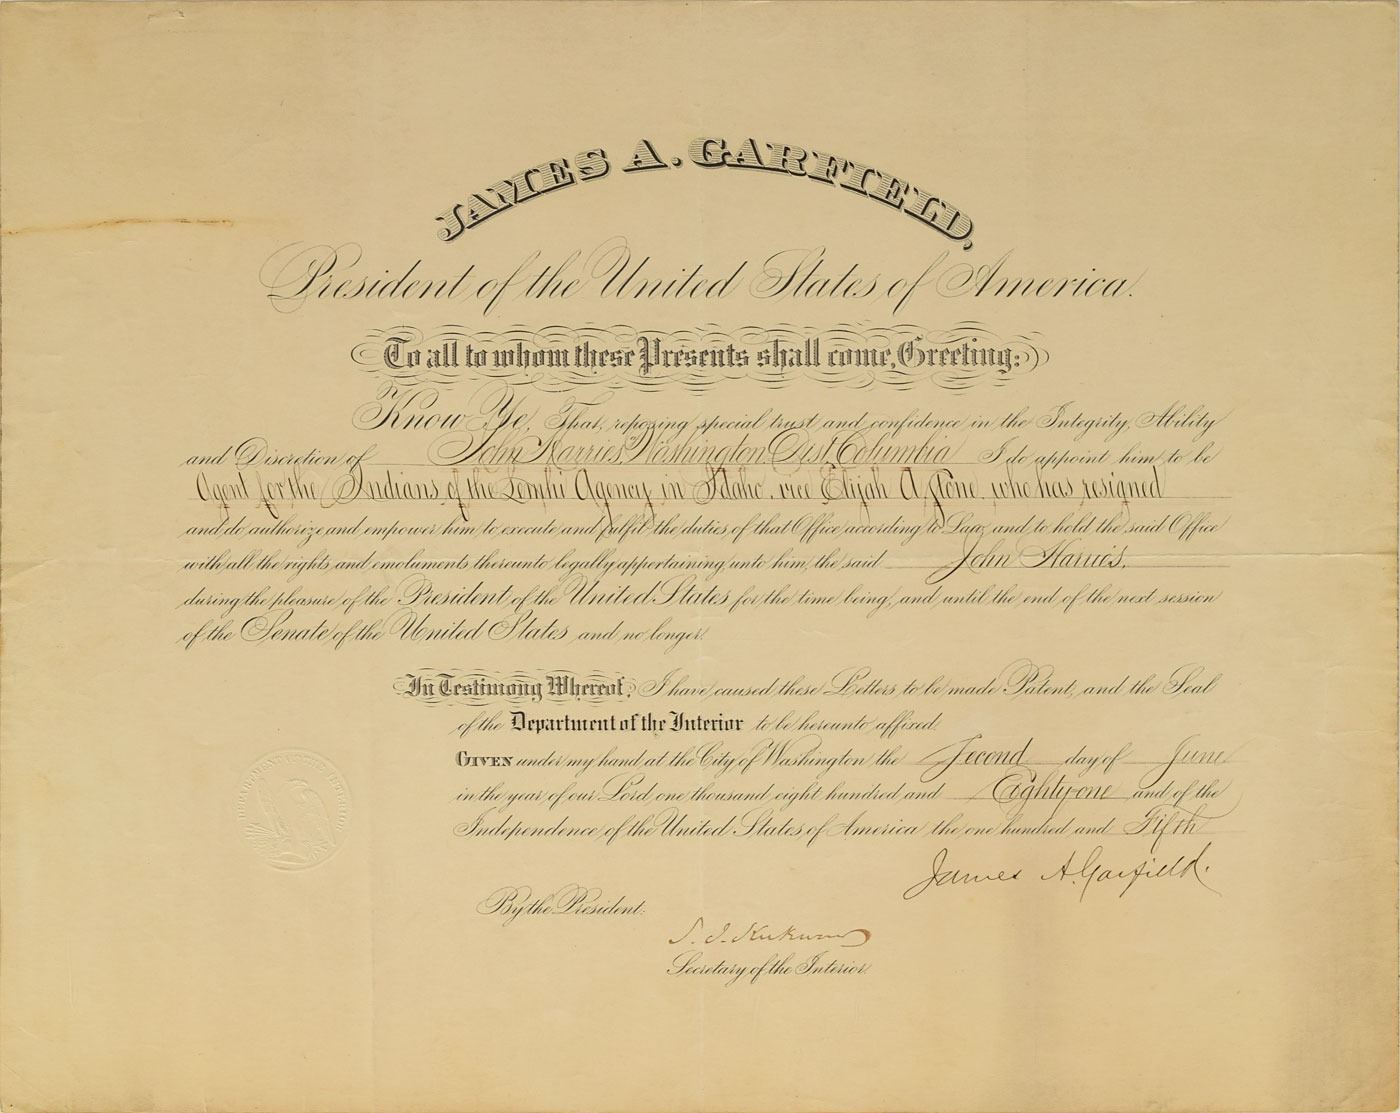 JAMES A. GARFIELD,
President of the United States of America.
To all to whom these Presents shall come, Greeting:
Know Ye, That, reposing special trust and confidence in the Integrity, Ability
and Discretion of John Harries, Washington, Dist. Columbia I do appoint him to be
Agent for the Indians of the Lemhi Agency in Idaho, vice Elijah A. Stone, who has resigned
and do authorize and empower him to execute and fulfil the duties of that Office according to Law, and to hold the said Office
with all the rights and emoluments thereunto legally appertaining unto him, the said John Harries,
during the pleasure of the President of the United States for the time being, and until the end of the next session
of the Senate of the United States and no longer.
In Testimony Whereof, I have caused these Letters to be made Patent, and the Seal
of the Department of the Interior to be hereunto affixed.
GIVEN under my hand at the City of Washington the Second day of June
in the year of our Lord one thousand eight hundred and Eighty-one and of the
Independence of the United States of America the one hundred and Fifth
James A. Garfield.
By the President:
S. J. Kirkwood
Secretary of the Interior.